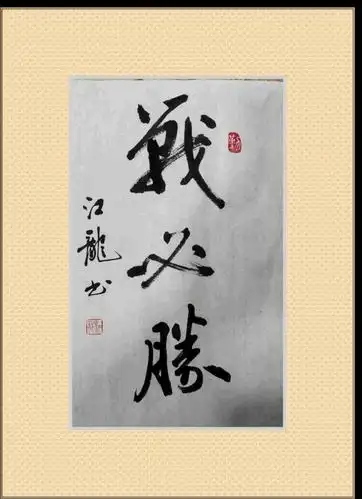 戰必勝
江龍书